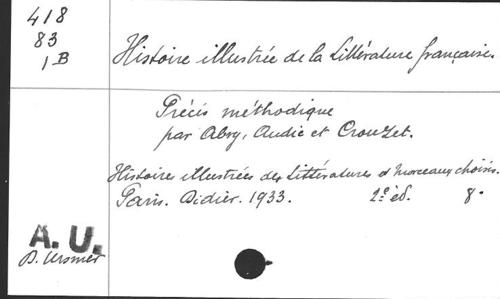 418
83
1 B
Histoire illustrée de la Littérature française.
Précis méthodique
par Abry, Audic et Crouzet.
Histoires illustrées des Littératures et morceaux choisis.
Paris. Didier. 1933. 2e éd. 8°
A. U.